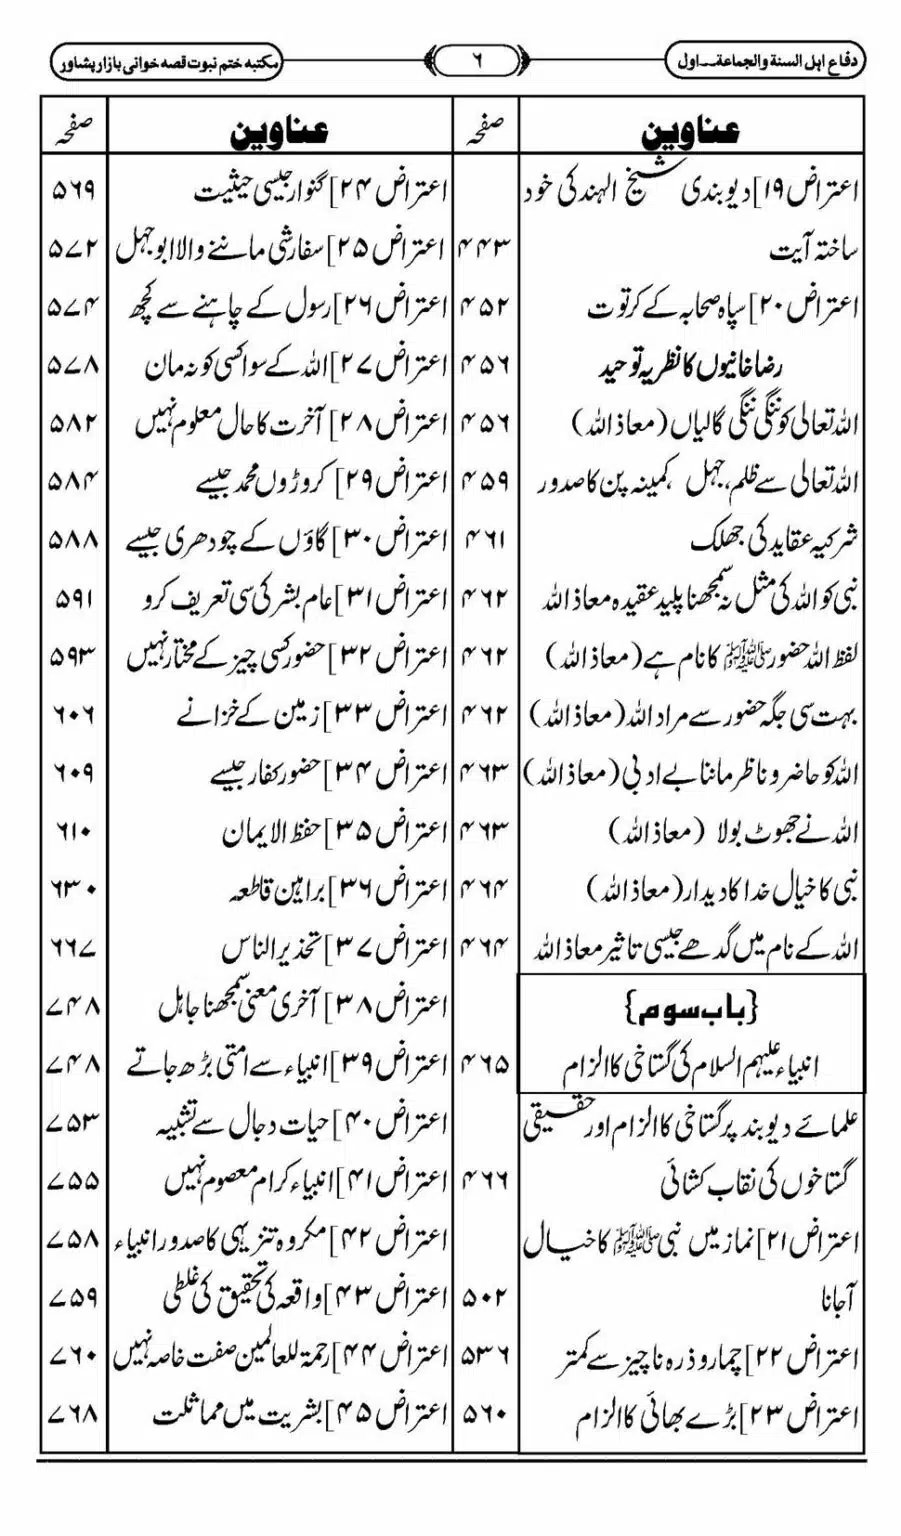 دفاع اہل السنة والجماعة۔۔اول
۶
مکتبہ ختم نبوت قصہ خوانی بازار پشاور
عناوین صفحہ
اعتراض ۱۹] دیوبندی شیخ الہند کی خود
ساختہ آیت ۴۴۳
اعتراض ۲۰] سپاہ صحابہ کے کرتوت ۴۵۲
رضاخانیوں کا نظریہ توحید ۴۵۶
اللہ تعالی کو ننگی ننگی گالیاں (معاذ اللہ) ۴۵۶
اللہ تعالی سے ظلم، جہل، کمینہ پن کا صدور ۴۵۹
شرکیہ عقاید کی جھلک ۴۶۱
نبی کو اللہ کی مثل نہ سمجھنا پلید عقیدہ معاذ اللہ ۴۶۲
لفظ اللہ حضور ﷺ کا نام ہے (معاذ اللہ) ۴۶۲
بہت سی جگہ حضور سے مراد اللہ (معاذ اللہ) ۴۶۲
اللہ کو حاضر و ناظر ماننا بے ادبی (معاذ اللہ) ۴۶۳
اللہ نے جھوٹ بولا (معاذ اللہ) ۴۶۳
نبی کا خیال خدا کا دیدار (معاذ اللہ) ۴۶۴
اللہ کے نام میں گدھے جیسی تاثیر معاذ اللہ ۴۶۴
{باب سوم}
انبیاء علیہم السلام کی گستاخی کا الزام ۴۶۵
علمائے دیوبند پر گستاخی کا الزام اور حقیقی
گستاخوں کی نقاب کشائی ۴۶۶
اعتراض ۲۱] نماز میں نبی ﷺ کا خیال
آجانا ۵۰۲
اعتراض ۲۲] چمار و ذرہ ناچیز سے کمتر ۵۳۶
اعتراض ۲۳] بڑے بھائی کا الزام ۵۶۰
عناوین صفحہ
اعتراض ۲۴] گنوار جیسی حیثیت ۵۶۹
اعتراض ۲۵] سفارشی ماننے والا ابو جہل ۵۷۲
اعتراض ۲۶] رسول کے چاہنے سے کچھ ۵۷۴
اعتراض ۲۷] اللہ کے سوا کسی کو نہ مان ۵۷۸
اعتراض ۲۸] آخرت کا حال معلوم نہیں ۵۸۲
اعتراض ۲۹] کروڑوں محمد جیسے ۵۸۴
اعتراض ۳۰] گاؤں کے چودھری جیسے ۵۸۸
اعتراض ۳۱] عام بشر کی سی تعریف کرو ۵۹۱
اعتراض ۳۲] حضور کسی چیز کے مختار نہیں ۵۹۳
اعتراض ۳۳] زمین کے خزانے ۶۰۶
اعتراض ۳۴] حضور کفار جیسے ۶۰۹
اعتراض ۳۵] حفظ الایمان ۶۱۰
اعتراض ۳۶] براہین قاطعہ ۶۳۰
اعتراض ۳۷] تحذیر الناس ۶۶۷
اعتراض ۳۸] آخری معنی سمجھنا جاہل ۷۴۸
اعتراض ۳۹] انبیاء سے امتی بڑھ جاتے ۷۴۸
اعتراض ۴۰] حیات دجال سے تشبیہ ۷۵۳
اعتراض ۴۱] انبیاء کرام معصوم نہیں ۷۵۵
اعتراض ۴۲] مکروہ تنزیہی کا صدور انبیاء ۷۵۸
اعتراض ۴۳] واقعہ کی تحقیق کی غلطی ۷۵۹
اعتراض ۴۴] رحمة للعالمین صفت خاصہ نہیں ۷۶۰
اعتراض ۴۵] بشریت میں مماثلت ۷۶۸